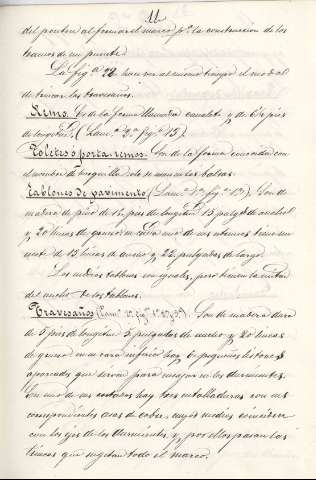 11
del ponton al formar el marco pª la construccion de los
tramos de un puente.
La figª 22 hace ver al mismo tiempo el modo de
de trincar los travesaños.
Remo. Es de la forma llamada canalete y de 6½ pies
de longitud. (Lamª 3ª figª 15).
Toletes ó porta-remos. Son de la forma conocida con
el nombre de horquilla
Tablones de pavimento (Lamª figª 1ª). Son de
madera de pino de 12 pies de longitud 13 pulgs de anchos
y 20 lineas de grueso en cada uno de sus estremos tiene un
de 15 lineas de ancho y 22 pulgadas de largo.
Los medios tablones son iguales, pero tienen la mitad
del ancho de los tablones.
Travesaños Son de madera dura
de 5 pies de longitud 5 pulgadas de ancho y 20 lineas
de grueso en su cara inferior hay 6 pequeños listones
apareados que sirven para encajar en los durmientes.
En uno de sus estremos hay tres entalladuras con sus
correspondientes asas de cobre, cuyos medios coinciden
con los ejes de los durmientes y por ellos pasan las
trincas que sugetan todo el marco.